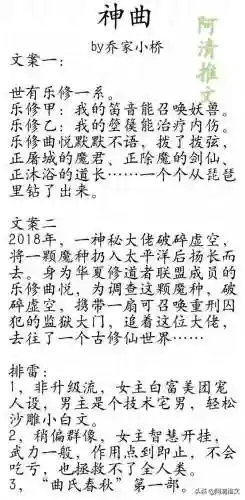 神曲
阿清推文
by乔家小桥
文案一：
世有乐修一系。
乐修甲：我的笛音能召唤妖兽。
乐修乙：我的箜篌能治疗内伤。
乐修曲悦默默不语，拨了拨弦，
正屠城的魔君、正除魔的剑仙、
正沐浴的道长……一个个从琵琶
里钻了出来。
文案二
2018年，一神秘大佬破碎虚空，
将一颗魔种扔入太平洋后扬长而
去。身为华夏修道者联盟成员的
乐修曲悦，为调查这颗魔种，破
碎虚空，携带一扇可召唤重刑囚
犯的监狱大门，追着这位大佬，
去往了一个古修仙世界……
排雷：
1，非升级流，女主白富美团宠
人设，男主是个技术宅男，轻松
沙雕小白文。
2，稍偏群像，女主智慧开挂，
武力一般，作用点到即止，不会
吃亏，也拯救不了全人类。
3，“曲氏春秋”第一部。
头条@阿清推文